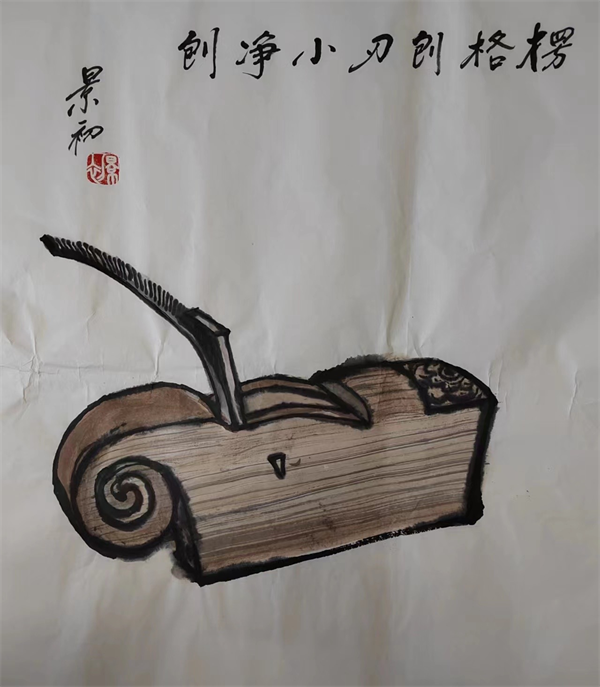 楞格刨刃小净刨
景初
景初